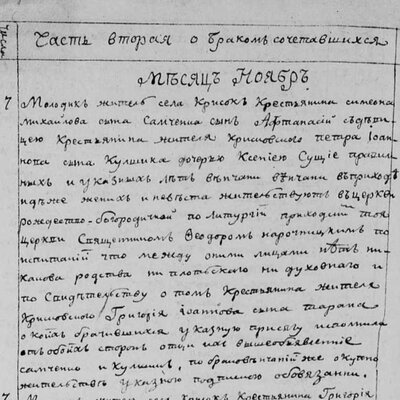 число
Часть вторая о бракомъсочетавшихся
Мѣсяцъ Ноябръ
7 Молодикъ житель села Крисокъ Крестьянина симеона
михайлова сына Самченка сынъ Афтанасій съдѣви
цею Крестьянина жителя Крисовского петра Іоан
нова сына Кулшика дочерью Ксеніею Сущіе правил
ныхъ и указныхъ лѣтъ вѣнчани въприход
идѣже женихъ и невѣста жительствуютъ въцеркви
рождество-богородичной по литургіи приходскимъ тоя
церкви Священникомъ Феодоромъ нарочицкимъ по
испытаній что между оними лицами нѣтъ ни
какова родства ни плотьского ни духовнаго и
по Свидѣтельству о томъ Крестьянина жителя
Крисовского Григорія Іоаннова сына тарана
о коихъ брачившихся указную присягу исполнили
отъ обоихъ сторонъ отци ихъ вышеобъявленніе
самченко и Кулшикъ, по браковѣнчаній же окупно
жительствѣ указною подпискою обовязанни.
7 житель села Крисокъ Крестьянина Григорія